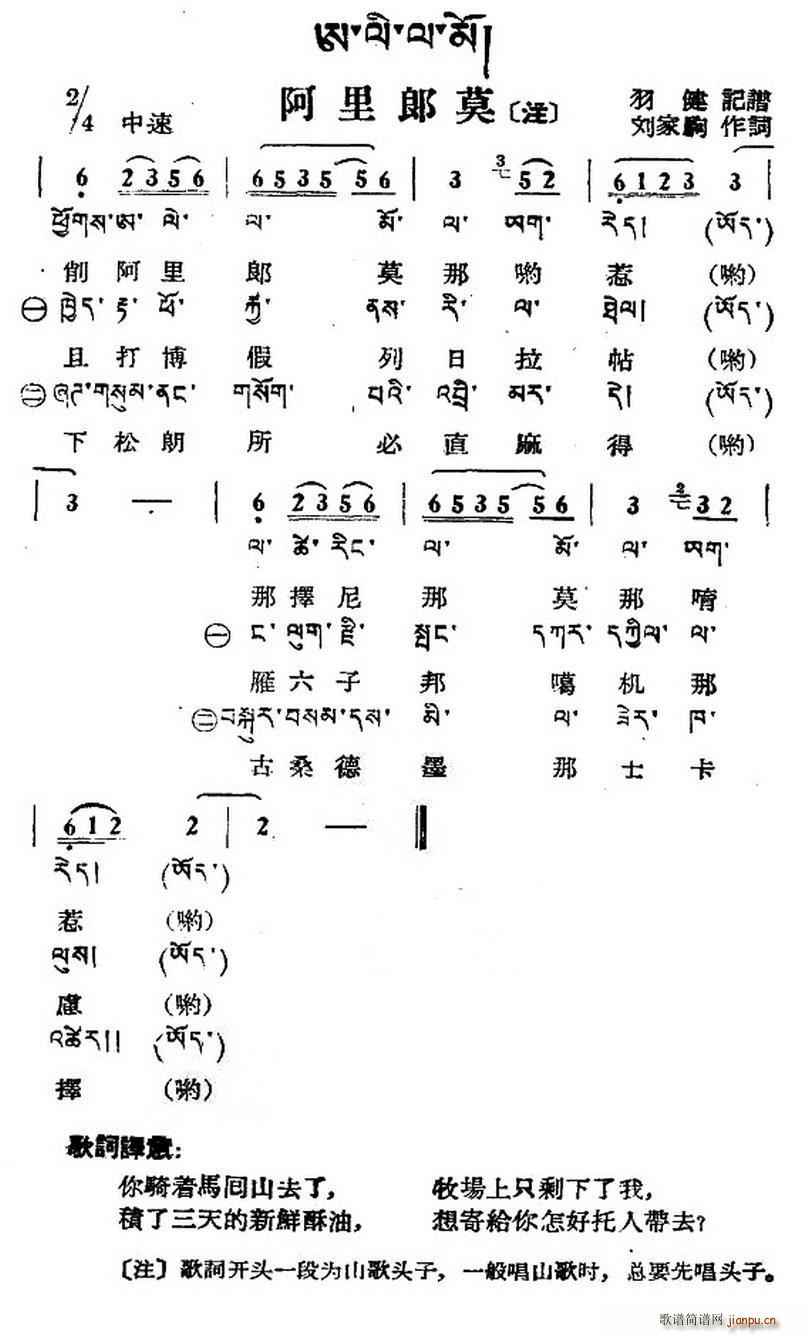 ཨ་ལི་ལ་མོ།
2/4 中速 阿里郎莫〔注〕 羽健記譜
刘家駒 作詞
| 6 2356 | 6535 56 | 3 52 | 6123 3 |
ཕྱོགས་ཨ་ལེ་ ལ་ མོ་ ལ་ ཨག་ རེད། (ཨོད་)
削阿里郎莫那喲惹(喲)
㊀ ཁྱེད་རྟ་ཕོ་ རྐྱ་ ནས་ རི་ ལ་ ཐེལ། (ཨོད་)
且打博假列日拉帖(喲)
㊁ ཞཊ་གསུམ་ནང་ གསོག་ པའི་ འབྲི་ མར་ དེ། (ཨོད་)
下松朗所必直麻得(喲)
| 3 — | 6 2356 | 6535 56 | 3 32 |
ལ་ ཚེ་ རིང་ ལ་ མོ་ ལ་ ཨག་
那擇尼那莫那唷
㊀ ང་ ལུག་ རྫི་ སྤང་ དཀར་ དཀྱིལ་ ལ་
雁六子邦噶机那
㊁ བསྐུར་བསམ་དས་ མི་ ལ་ ཟེར་ ཁ་
古桑德墨那士卡
| 612 2 | 2 — ‖
རེད། (ཨོད་)
惹(喲)
ལུས། (ཨོད་)
慮(喲)
འཚེར།། (ཨོད་)
擇(喲)
歌詞譯意：
你騎着馬囘山去了， 牧場上只剩下了我，
積了三天的新鮮酥油， 想寄給你怎好托人帶去？
〔注〕歌詞开头一段为山歌头子，一般唱山歌时，总要先唱头子。
歌谱简谱网 jianpu.cn